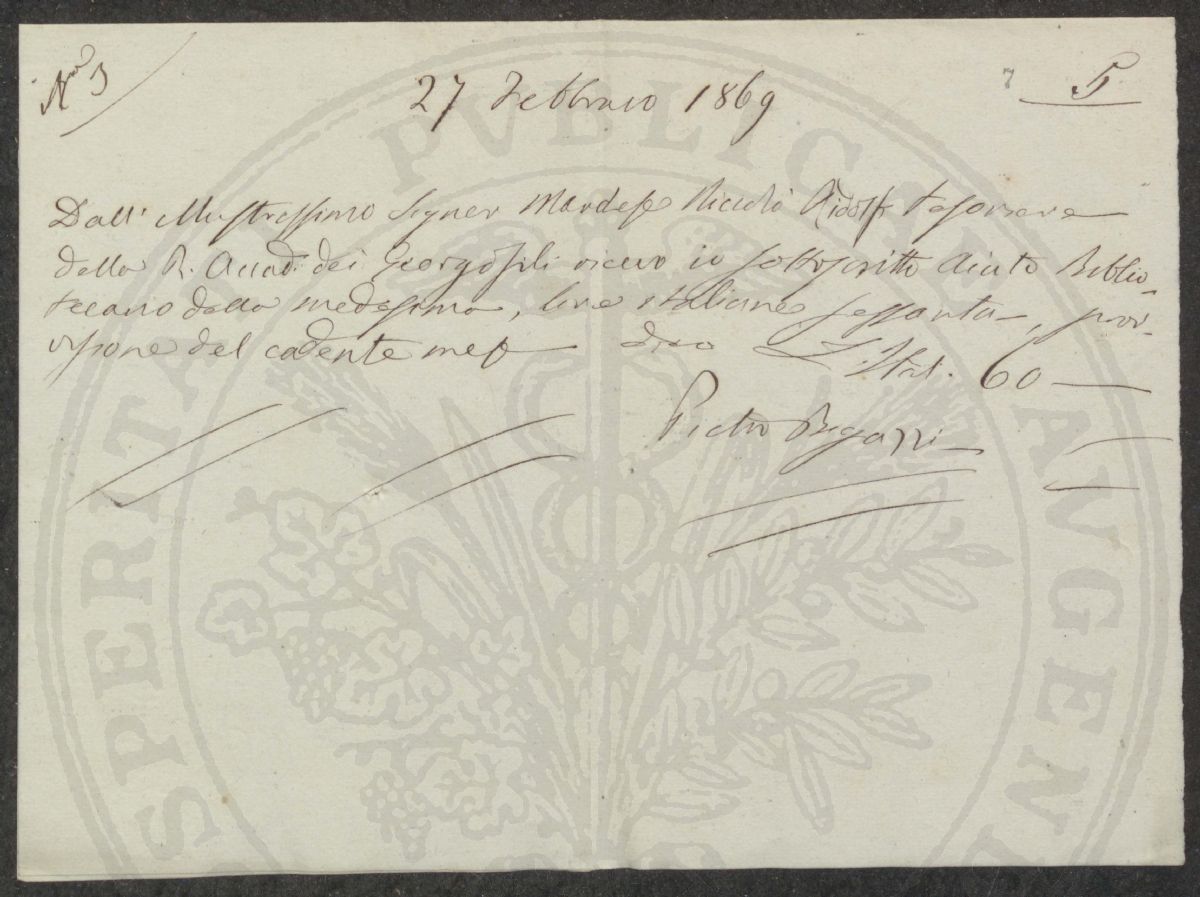 N.º 3
27 Febbraio 1869
7 5
Dall' Illustrissimo Signor Marchese Niccolò Ridolfi Tesoriere
della R. Accad. dei Georgofili ricevo io sottoscritto Aiuto Biblio-
tecario della medesima, lire italiane sessanta, prov-
visione del cadente mese dico L. Ital. 60
Pietro Bigazzi
PROSPERITATI PVBLICAE AVGENDAE